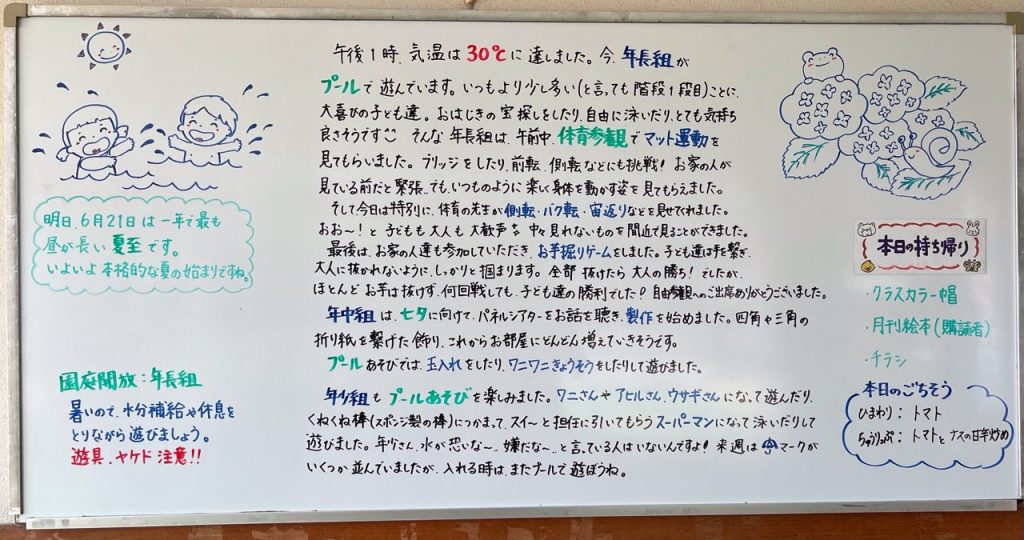 午後1時、気温は30℃に達しました。今、年長組が
プールで遊んでいます。いつもより少し多い(と言っても階段1段目)ことに、
大喜びの子ども達。おはじきの宝探しをしたり、自由に泳いだり、とても気持ち
良さそうです そんな年長組は、午前中、体育参観でマット運動を
見てもらいました。ブリッジをしたり、前転、側転などにも挑戦! お家の人が
見ている前だと緊張…でも、いつものように楽しく身体を動かす姿を見てもらえました。
そして今日は特別に、体育の先生が側転・バク転・宙返りなどを見せてくれました。
おお〜!と子どもも大人も大歓声 中々見れないものを間近で見ることができました。
最後は、お家の人達も参加していただき、お芋掘りゲームをしました。子ども達は手を繋ぎ、
大人に抜かれないように、しっかりと掴まります。全部抜けたら大人の勝ち!でしたが、
ほとんどお芋は抜けず、何回戦しても、子ども達の勝利でした!自由参観へのご出席ありがとうございました。
年中組は、七夕に向けて、パネルシアターをお話を聴き、製作を始めました。四角や三角の
折り紙を繋げた飾り、これからお部屋にどんどん増えていきそうです。
プールあそびでは、玉入れをしたり、ワニワニきょうそうをしたりして遊びました。
年少組もプールあそびを楽しみました。ワニさんやアヒルさん、ウサギさんになって遊んだり、
くねくね棒(スポンジ製の棒)につかまって、スイーと担任に引いてもらうスーパーマンになって泳いだりして
遊びました。年少さん、水が恐いな〜、嫌だな〜、と言っている人はいないんですよ!来週は☂マークが
いくつか並んでいましたが、入れる時は、またプールで遊ぼうね。
明日、6月21日は一年で最も
昼が長い夏至です。
いよいよ本格的な夏の始まりですね。
園庭開放:年長組
暑いので、水分補給や休息を
とりながら遊びましょう。
遊具、ヤケド注意!!
本日の持ち帰り
・クラスカラー帽
・月刊絵本(購読者)
・チラシ
本日のごちそう
ひまわり:トマト
ちゅうりっぷ:トマトとナスの甘辛炒め